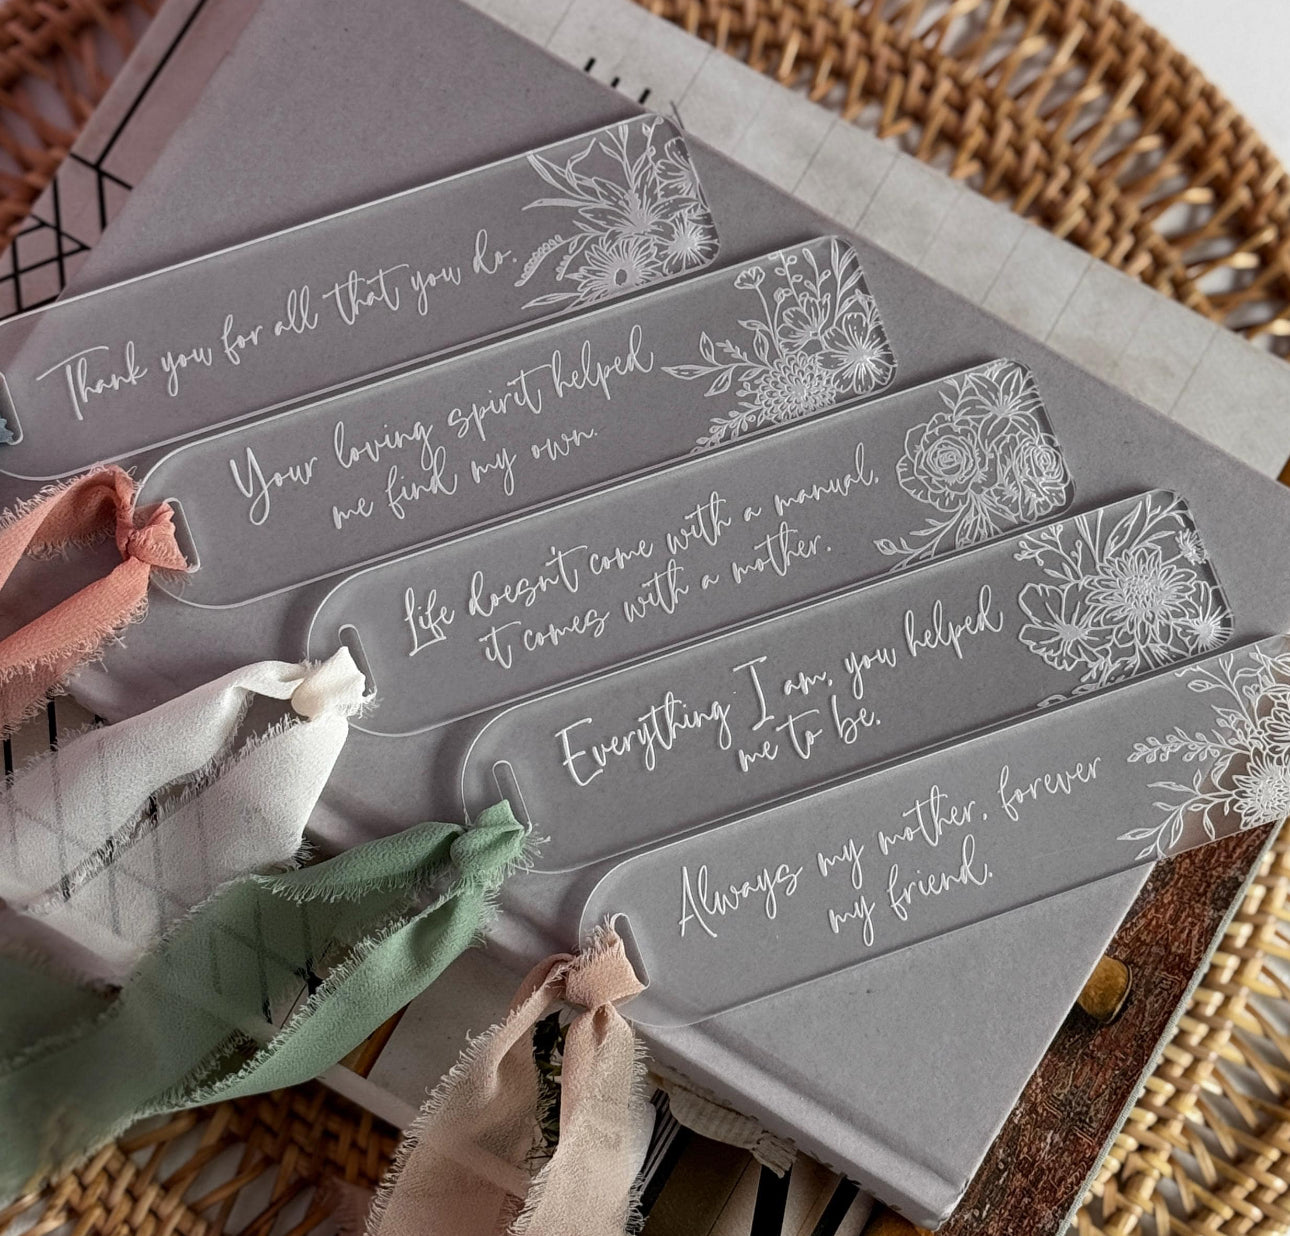 Thank you for all that you do.
Your loving spirit helped
me find my own.
Life doesn't come with a manual,
it comes with a mother.
Everything I am, you helped
me to be.
Always my mother, forever
my friend.